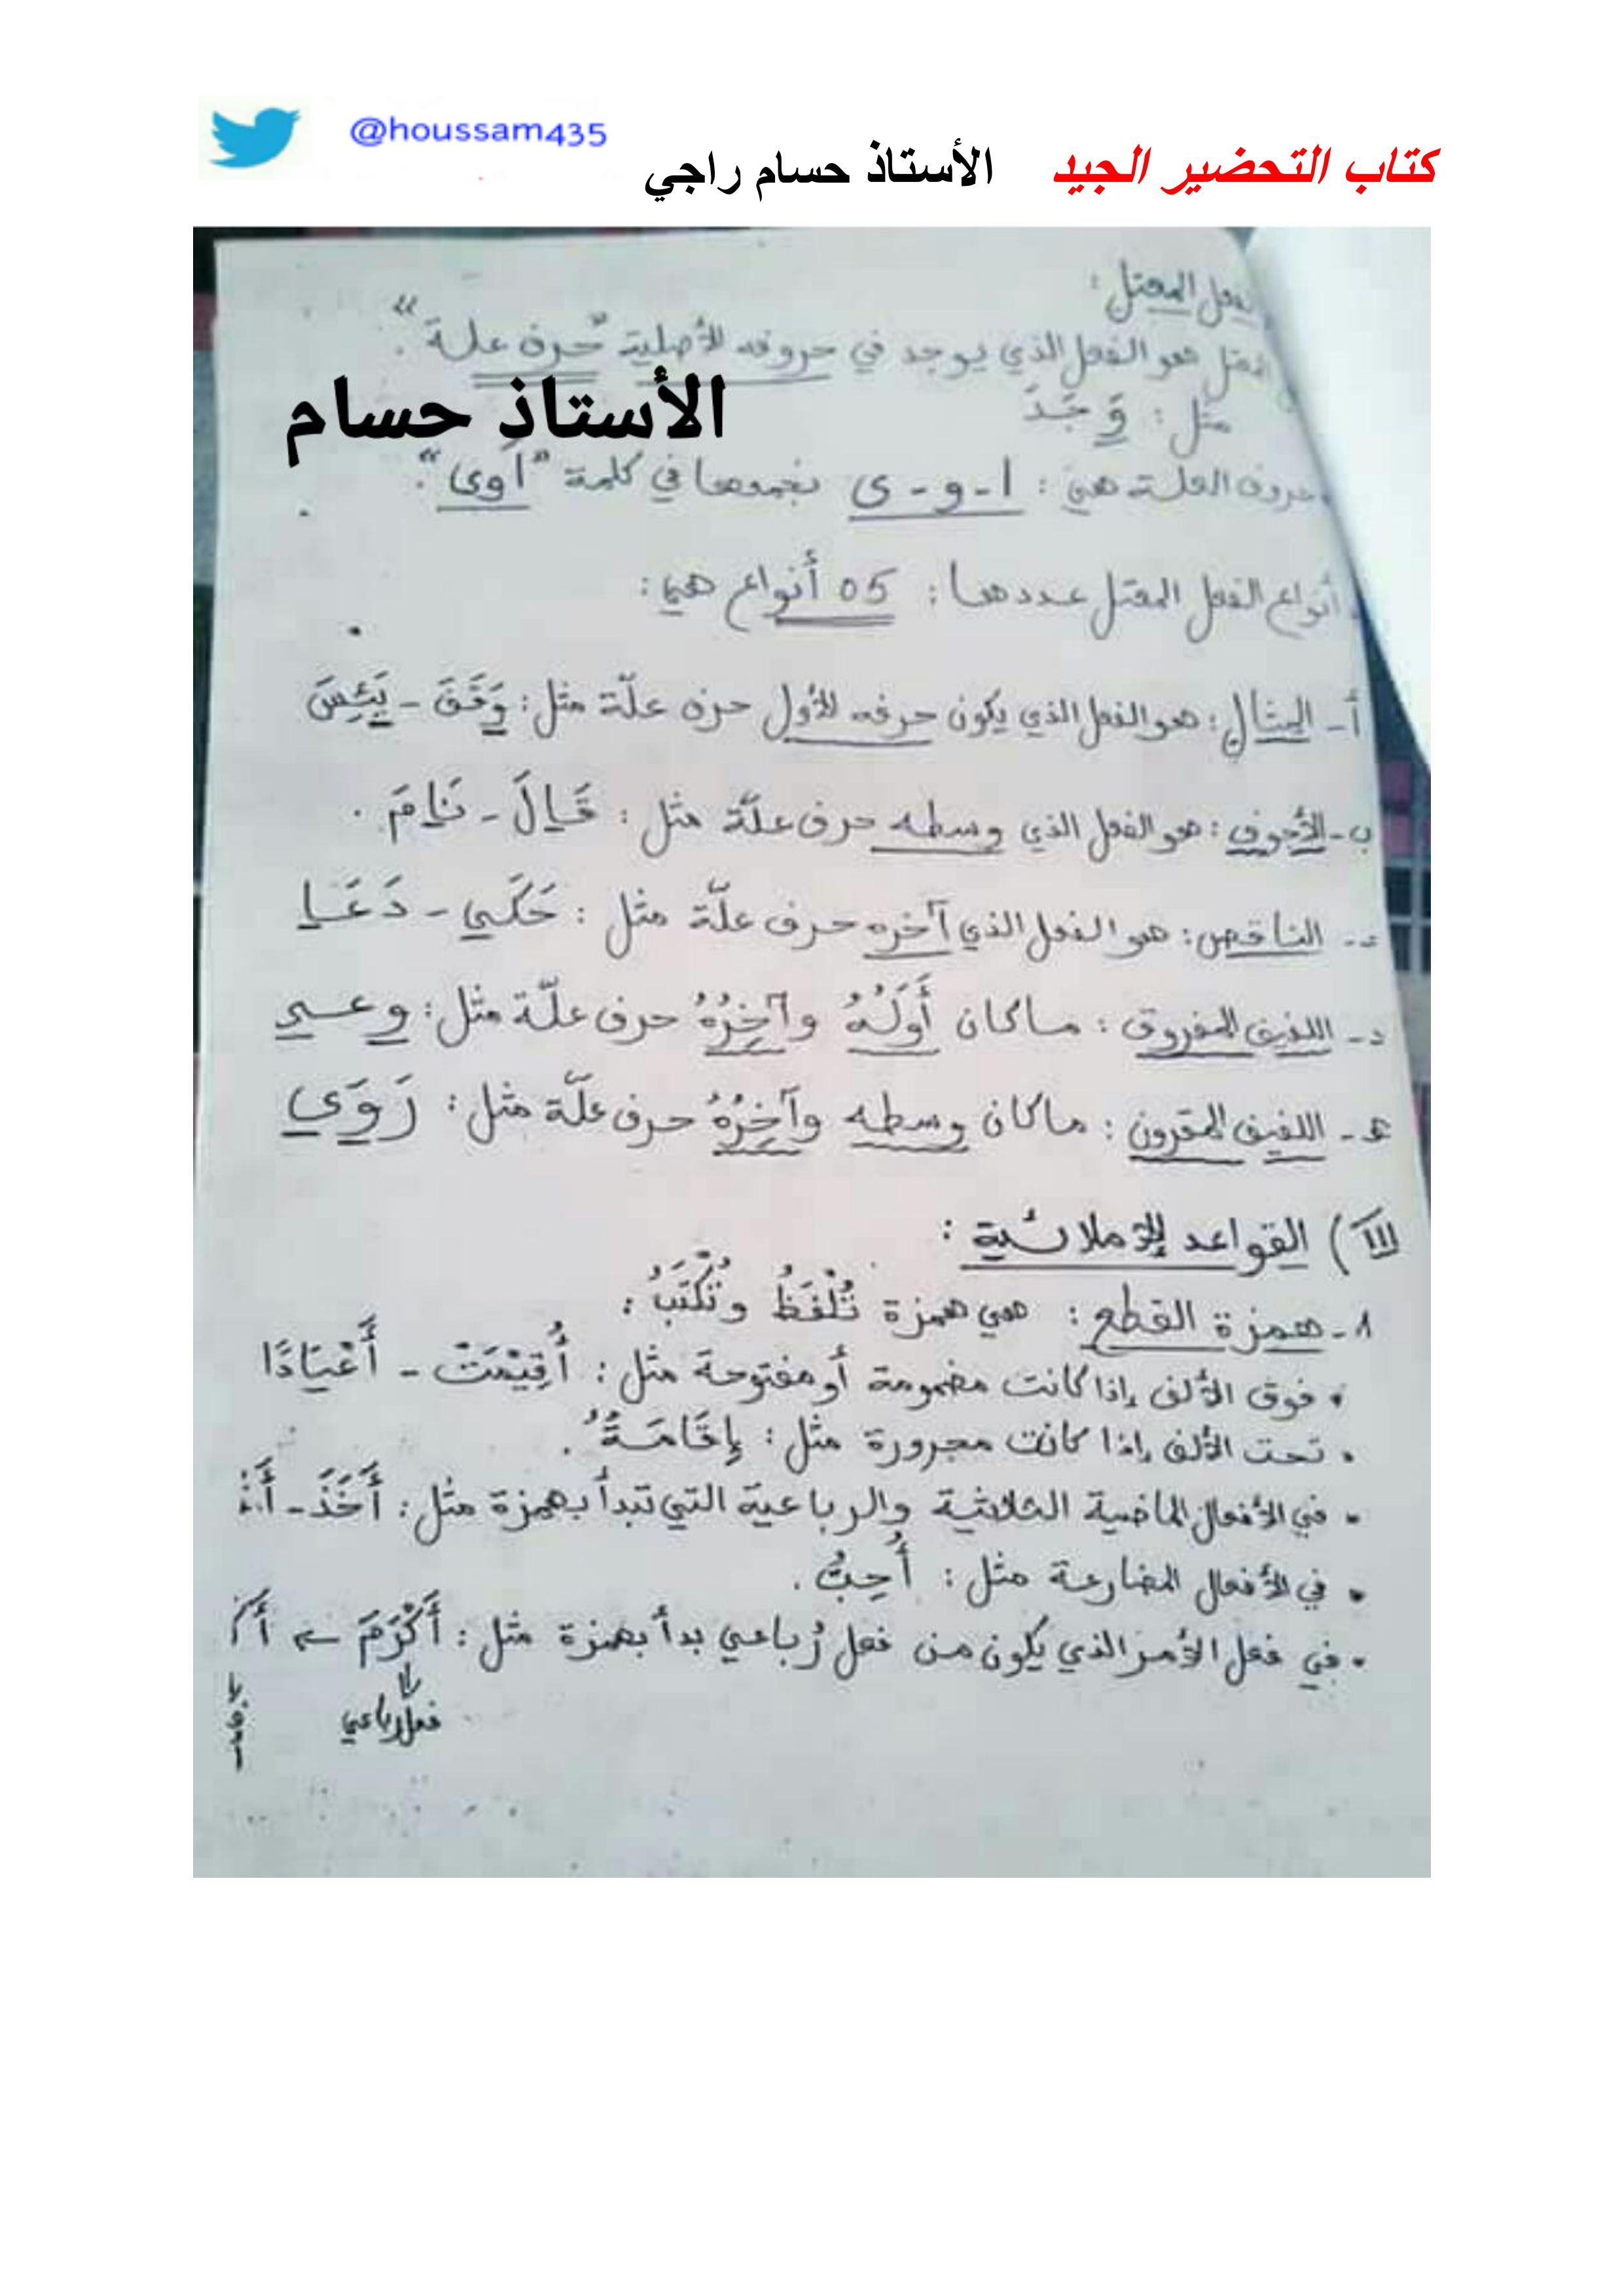 @houssam435
كتاب التحضير الجيد الأستاذ حسام راجي
الفعل المعتل:
المعتل هو الفعل الذي يوجد في حروفه الأصلية "حرف علة".
مثل: وَجَدَ
الأستاذ حسام
حروف العلة هي: ا - و - ى نجمعها في كلمة "أوى".
أنواع الفعل المعتل عددها: 05 أنواع هي:
أ- المثال: هو الفعل الذي يكون حرفه الأول حرف علّة مثل: وَقَفَ - يَئِسَ
ب- الأجوف: هو الفعل الذي وسطه حرف علّة مثل: قَالَ - نَامَ.
الناقص: هو الفعل الذي آخره حرف علّة مثل: حَكَى - دَعَا
د- اللفيف المفروق: ما كان أَوَلُهُ وآخِرُهُ حرف علّة مثل: وعى
هـ- اللفيف المقرون: ما كان وسطه وآخِرُهُ حرف علّة مثل: رَوَى
III) القواعد الإملائية:
1- همزة القطع: هي همزة تُلْفَظُ وتُكْتَبُ:
• فوق الألف إذا كانت مضمومة أو مفتوحة مثل: أُقِيْمَتْ - أَعْيَادًا
• تحت الألف إذا كانت مجرورة مثل: إِقَامَةُ.
• في الأفعال الماضية الثلاثية والرباعية التي تبدأ بهمزة مثل: أَخَذَ -
• في الأفعال المضارعة مثل: أُحِبُّ.
• في فعل الأمر الذي يكون من فعل رُباعي بدأ بهمزة مثل: أَكْرَمَ ←
فعل رباعي